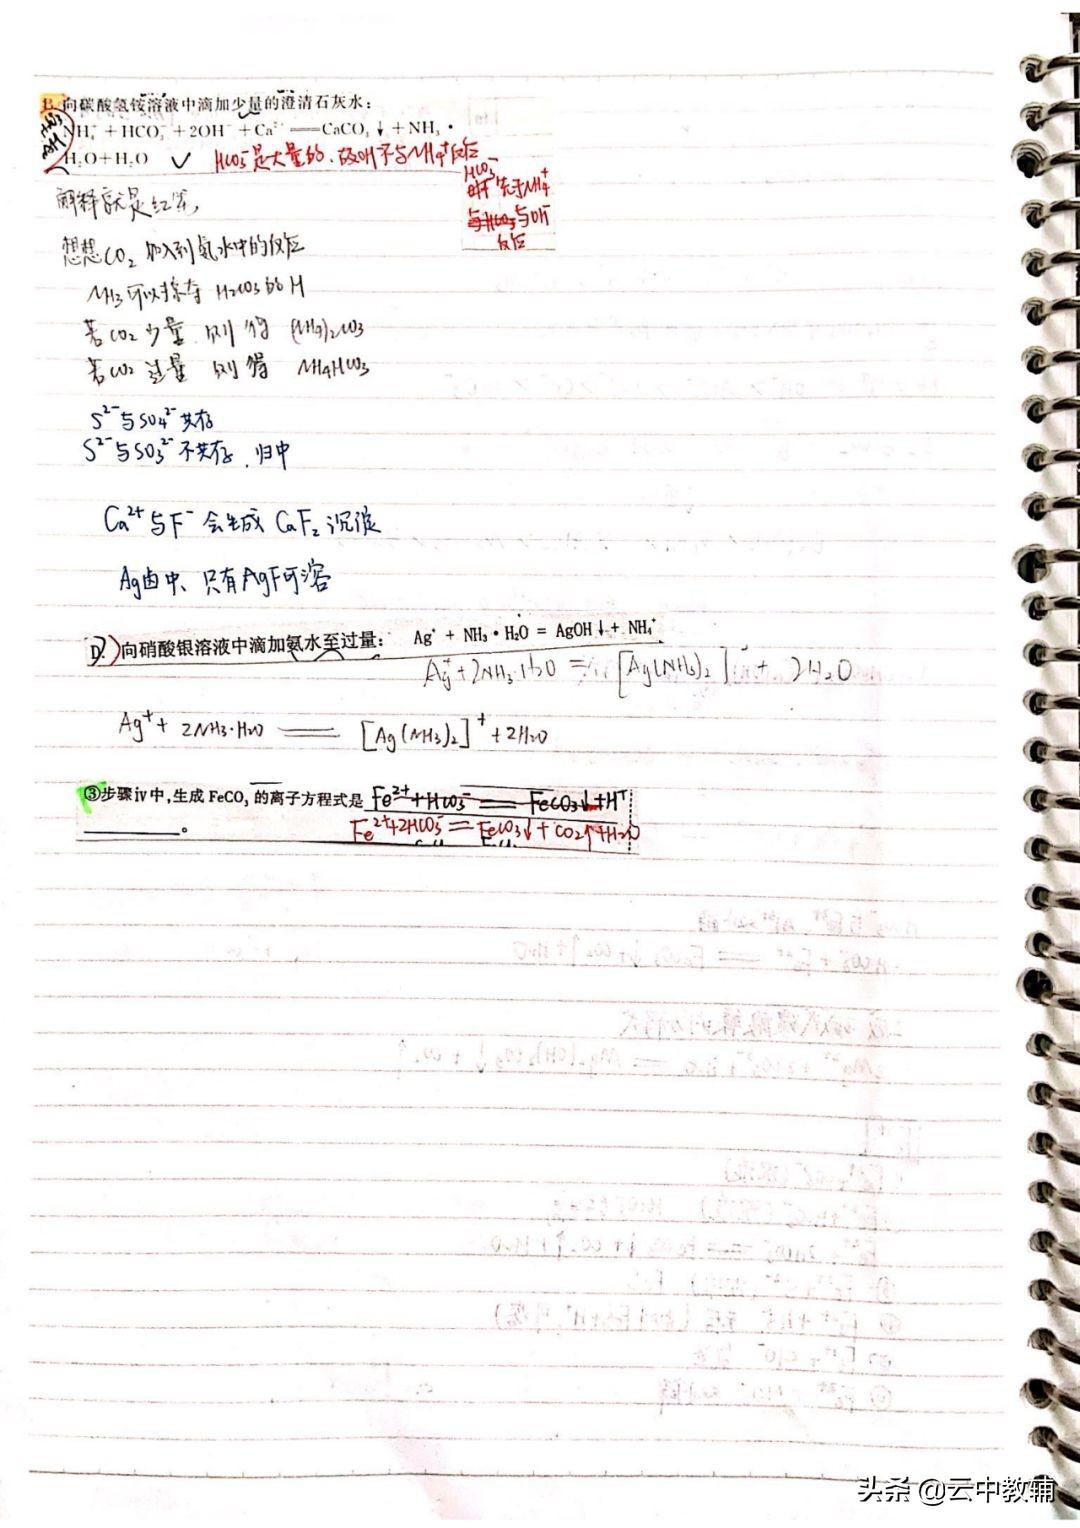 B. 向碳酸氢铵溶液中滴加少量的澄清石灰水：
NH₄⁺ + HCO₃⁻ + 2OH⁻ + Ca²⁺ ══ CaCO₃↓ + NH₃·
H₂O + H₂O ✓ HCO₃⁻是大量的，故OH⁻不与NH₄⁺反应
HCO₃⁻
先于NH₄⁺
与OH⁻
反应
解释就是红笔，
想想CO₂加入到氨水中的反应
NH₃可以掠夺H₂CO₃的H
若CO₂少量 则得 (NH₄)₂CO₃
若CO₂过量 则得 NH₄HCO₃
S²⁻与SO₄²⁻共存
S²⁻与SO₃²⁻不共存，归中
Ca²⁺与F⁻会生成CaF₂沉淀
Ag卤中、只有AgF可溶
D. 向硝酸银溶液中滴加氨水至过量： Ag⁺ + NH₃·H₂O = AgOH↓ + NH₄⁺
Ag⁺+2NH₃·H₂O = [Ag(NH₃)₂]⁺ + 2H₂O
Ag⁺ + 2NH₃·H₂O ══ [Ag(NH₃)₂]⁺ + 2H₂O
③步骤iv中，生成FeCO₃的离子方程式是 Fe²⁺+HCO₃⁻ ══ FeCO₃↓+H⁺
________。 Fe²⁺+2HCO₃⁻ = FeCO₃↓+CO₂↑+H₂O
头条 @云中教辅